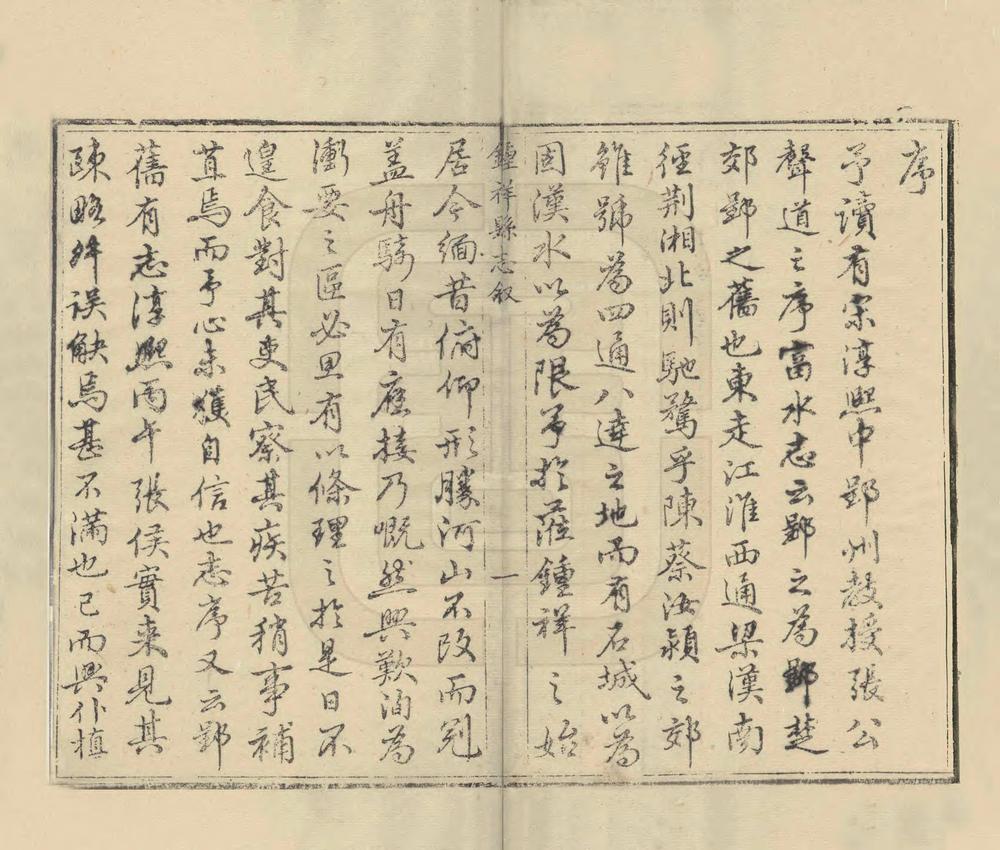 序
予讀有宋淳熙中郢州教授張公
聲道之序富水志云郢之為郢楚
郊郢之舊也東走江淮西通梁漢南
徑荆湘北則馳騖乎陳蔡汝潁之郊
雖號為四通八達之地而有石城以為
固漢水以為限予於蒞鍾祥之始
鍾祥縣志敘
一
居今緬昔俯仰形勝河山不改而冠
蓋舟騎日有應接乃嘅然興歎洵為
衝要之區必思有以條理之於是日不
遑食對其吏民察其疾苦稍事補
苴焉而予心未獲自信也志序又云郢
舊有志淳熙丙午張侯實來見其
踈略舛误觖焉甚不滿也已而興仆植